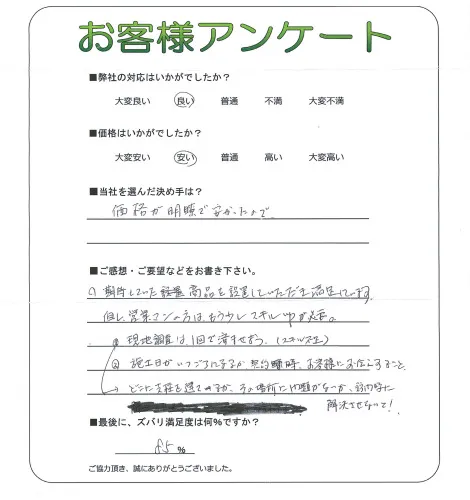 お客様アンケート
■弊社の対応はいかがでしたか?
大変良い 良い 普通 不満 大変不満
■価格はいかがでしたか?
大変安い 安い 普通 高い 大変高い
■当社を選んだ決め手は?
価格が明瞭で安かったので
■ご感想・ご要望などをお書き下さい。
期待していた設置商品を設置していただき満足しています。
但し、営業マンの方はもう少しスキルupが必要。
現地調査は1回で済ませよう。
施工日がいつごろになるか お客様にお伝えすること
どこに 置 この場所に問題がないか、
解決させないと!
■最後に、ズバリ満足度は何%ですか?
85%
ご協力頂き、誠にありがとうございました。